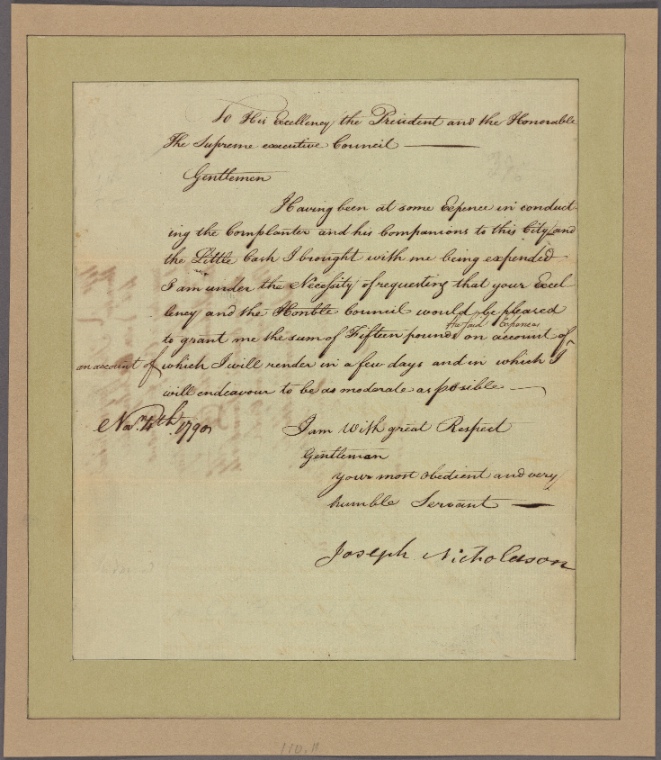 To His Excellency the President and the Honorable
The Supreme executive Council —
Gentlemen
Having been at some Expence in conduct-
ing the Cornplanter and his Companions to this City and
the Little Cash I brought with me being expended
I am under the Necessity of requesting that your Excel
lency and the Honble Council would be pleased
to grant me the sum of Fifteen pounds on account of
the said Expences
an account of which I will render in a few days and in which I
will endeavour to be as moderate as possible —
Novr. 4th. 1790
I am With great Respect
Gentleman
your most obedient and very
humble Servant —
Joseph Nicholason
110.